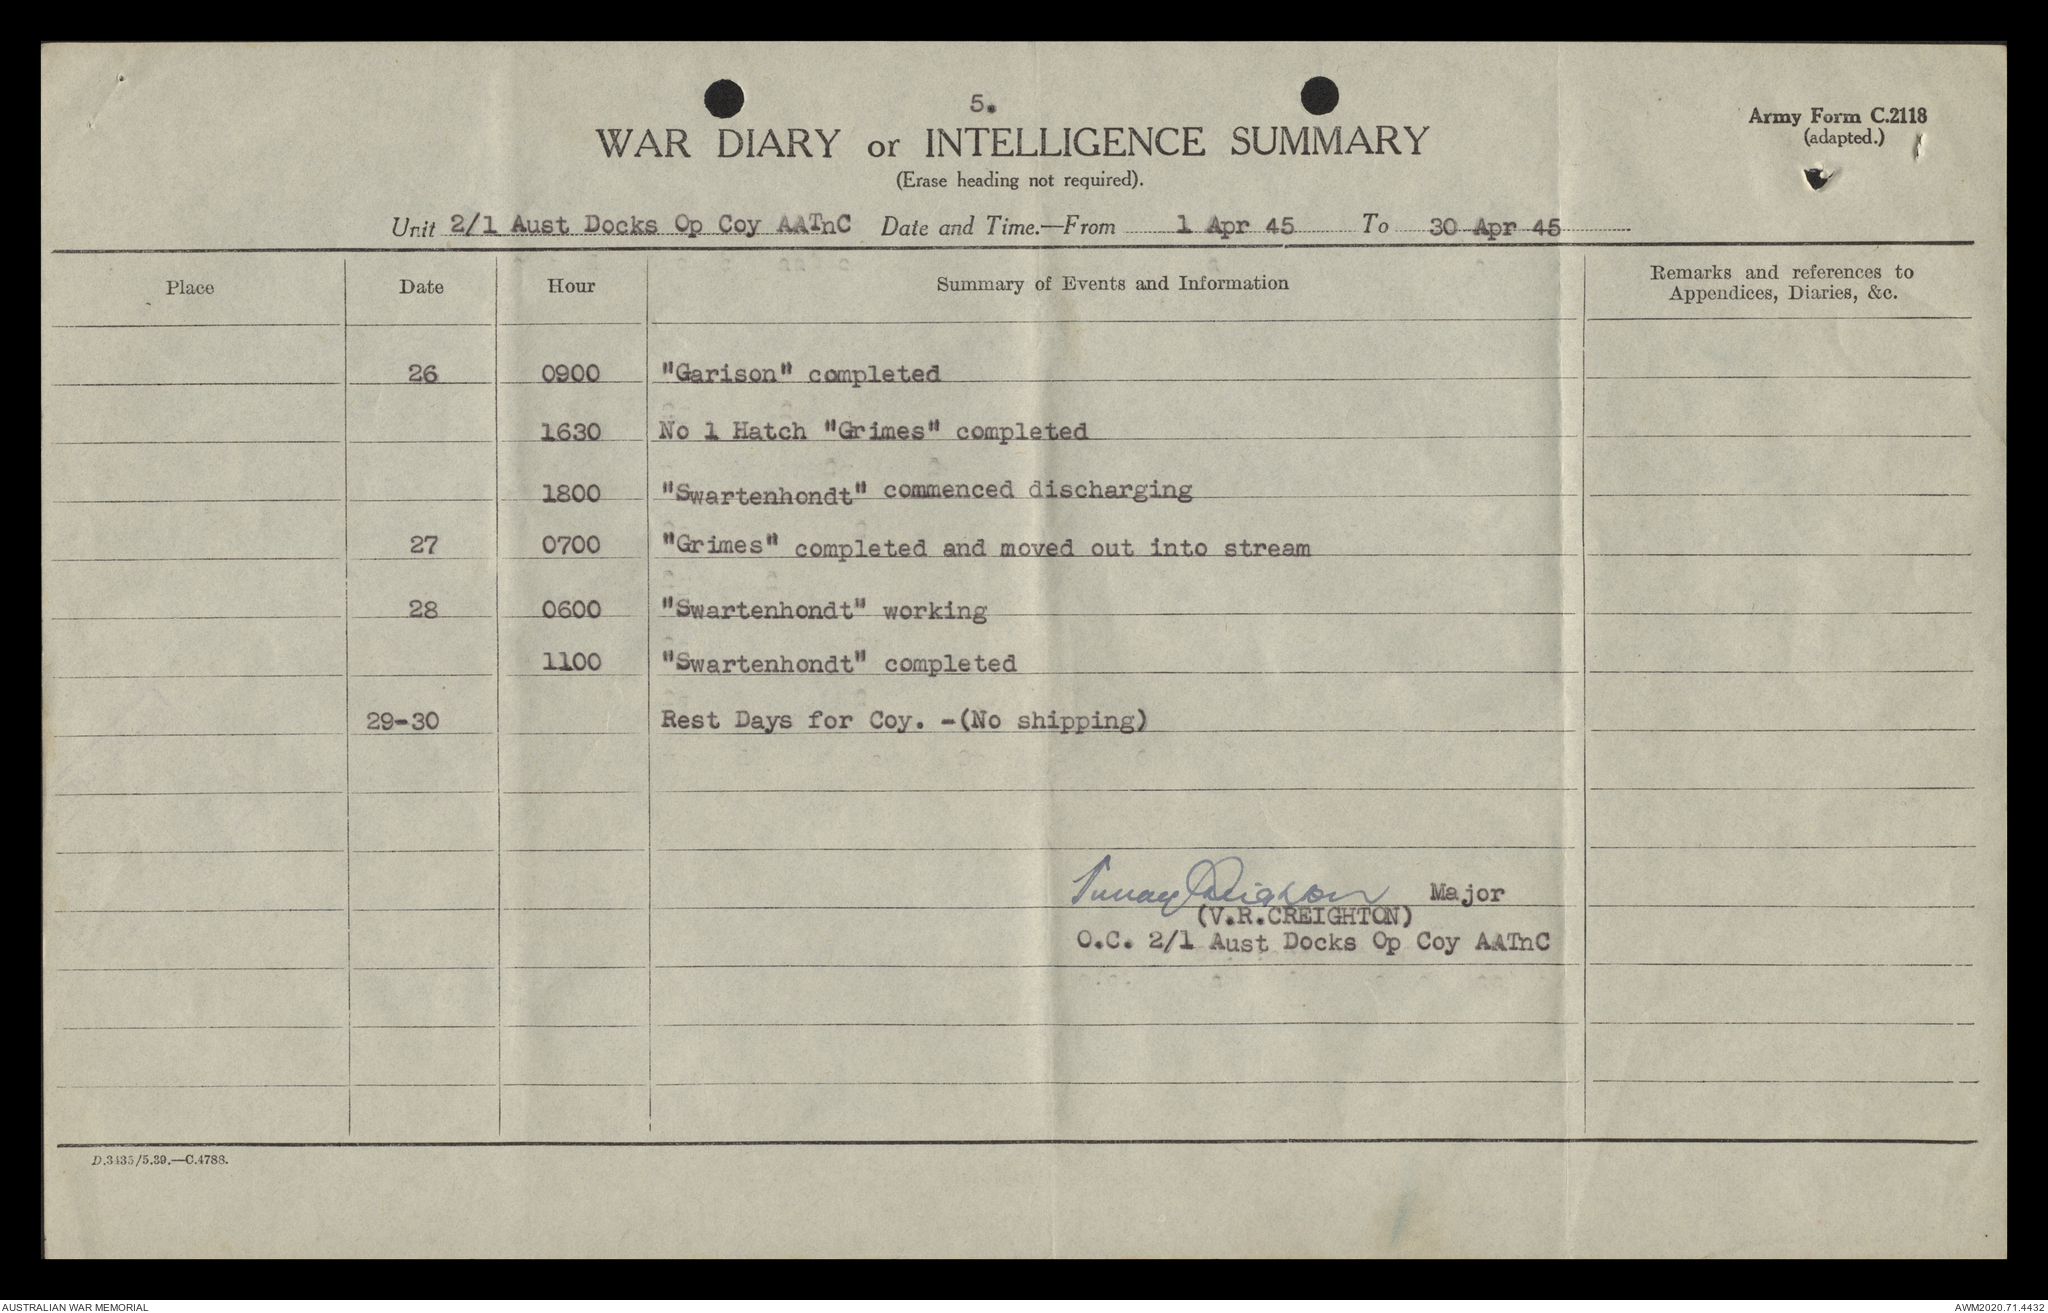 5.
WAR DIARY or INTELLIGENCE SUMMARY
Army Form C.2118
(adapted.)
(Erase heading not required).
Unit 2/1 Aust Docks Op Coy AATnC Date and Time.—From 1 Apr 45 To 30 Apr 45
Place Date Hour Summary of Events and Information Remarks and references to
Appendices, Diaries, &c.
26 0900 "Garison" completed
1630 No 1 Hatch "Grimes" completed
1800 "Swartenhondt" commenced discharging
27 0700 "Grimes" completed and moved out into stream
28 0600 "Swartenhondt" working
1100 "Swartenhondt" completed
29-30 Rest Days for Coy. -(No shipping)
Creighton Major
(V.R.CREIGHTON)
O.C. 2/1 Aust Docks Op Coy AATnC
D.3435/5.39.—C.4788.
AUSTRALIAN WAR MEMORIAL AWM2020.71.4432